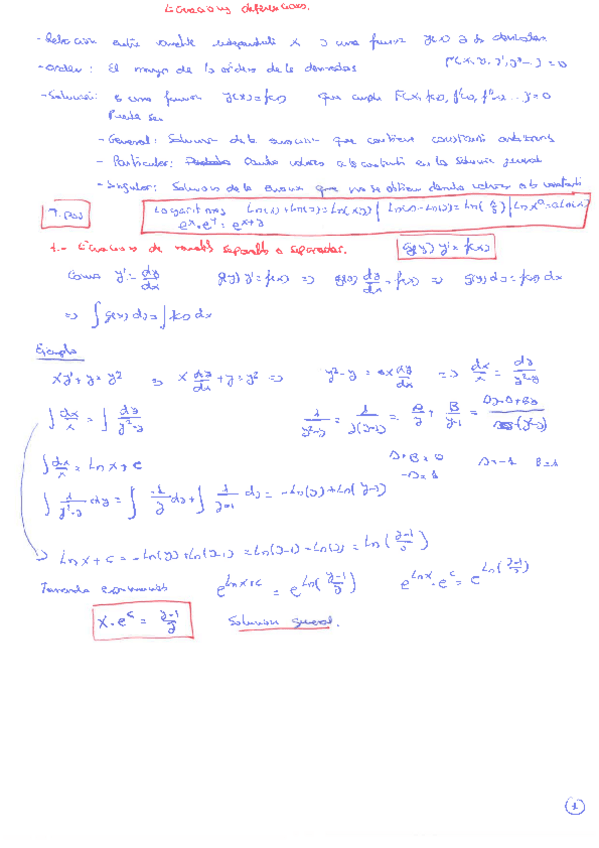 Ecuaciones diferenciales.
- Relación entre variable independiente x y una función y(x) y sus derivadas
- Orden: El mayor de los órdenes de las derivadas F(x, y, y', y''...) = 0
- Solución: es una función y(x) = f(x) que cumple F(x, f(x), f'(x), f''(x)...) = 0
Puede ser
- General: Solución de la ecuación que contiene constantes arbitrarias
- Particular: Dando valores a las constantes en la solución general
- Singular: Solución de la ecuación que no se obtiene dando valores a las constantes
T. Prop Logaritmos Ln(x)+Ln(y)=Ln(x·y) | Ln(x)-Ln(y)=Ln(x/y) | Ln x^a = a Ln(x)
e^x · e^y = e^{x+y}
1.- Ecuaciones de variables separables o separadas. g(y) y' = f(x)
Como y' = dy/dx g(y) y' = f(x) => g(y) dy/dx = f(x) => g(y) dy = f(x) dx
=> ∫ g(y) dy = ∫ f(x) dx
Ejemplo
xy' + y = y² => x dy/dx + y = y² => y² - y = x dy/dx => dx/x = dy/(y²-y)
∫ dx/x = ∫ dy/(y²-y) 1/(y²-y) = 1/(y(y-1)) = A/y + B/(y-1) = (Ay-A+By)/(y(y-1))
A+B=0
∫ dx/x = Ln x + C -A=1 A=-1 B=1
∫ 1/(y²-y) dy = ∫ -1/y dy + ∫ 1/(y-1) dy = -Ln(y) + Ln(y-1)
=> Ln x + C = -Ln(y) + Ln(y-1) = Ln(y-1) - Ln(y) = Ln((y-1)/y)
Tomando exponenciales e^{Ln x + C} = e^{Ln((y-1)/y)} e^{Ln x} · e^C = e^{Ln((y-1)/y)}
x · e^C = (y-1)/y Solución general.
1